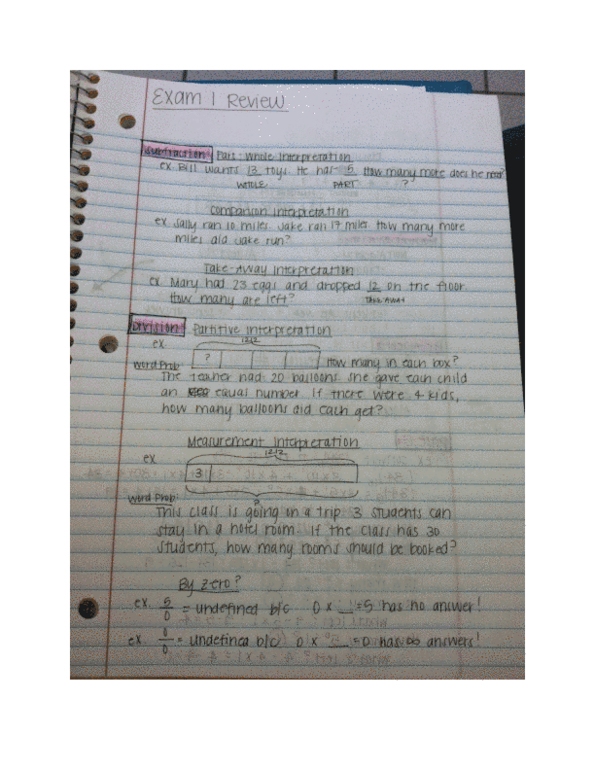 Exam 1 Review
Subtraction Part-Whole Interpretation
ex. Bill wants 13 toys. He has 5. How many more does he need?
WHOLE PART ?
Comparison Interpretation
ex. Sally ran 10 miles. Jake ran 17 miles. How many more
miles did Jake run?
Take-Away Interpretation
ex. Mary had 23 eggs and dropped 12 on the floor.
How many are left? TAKE AWAY
Division Partitive Interpretation
ex. 1212
? How many in each box?
Word Prob:
The teacher had 20 balloons. She gave each child
an equal number. If there were 4 kids,
how many balloons did each get?
Measurement Interpretation
ex. 1212
3
?
Word Prob:
This class is going on a trip. 3 students can
stay in a hotel room. If the class has 30
students, how many rooms should be booked?
By zero?
ex. 5/0 = undefined b/c 0 x __ = 5 has no answer!
ex. 0/0 = undefined b/c 0 x __ = 0 has ∞ answers!